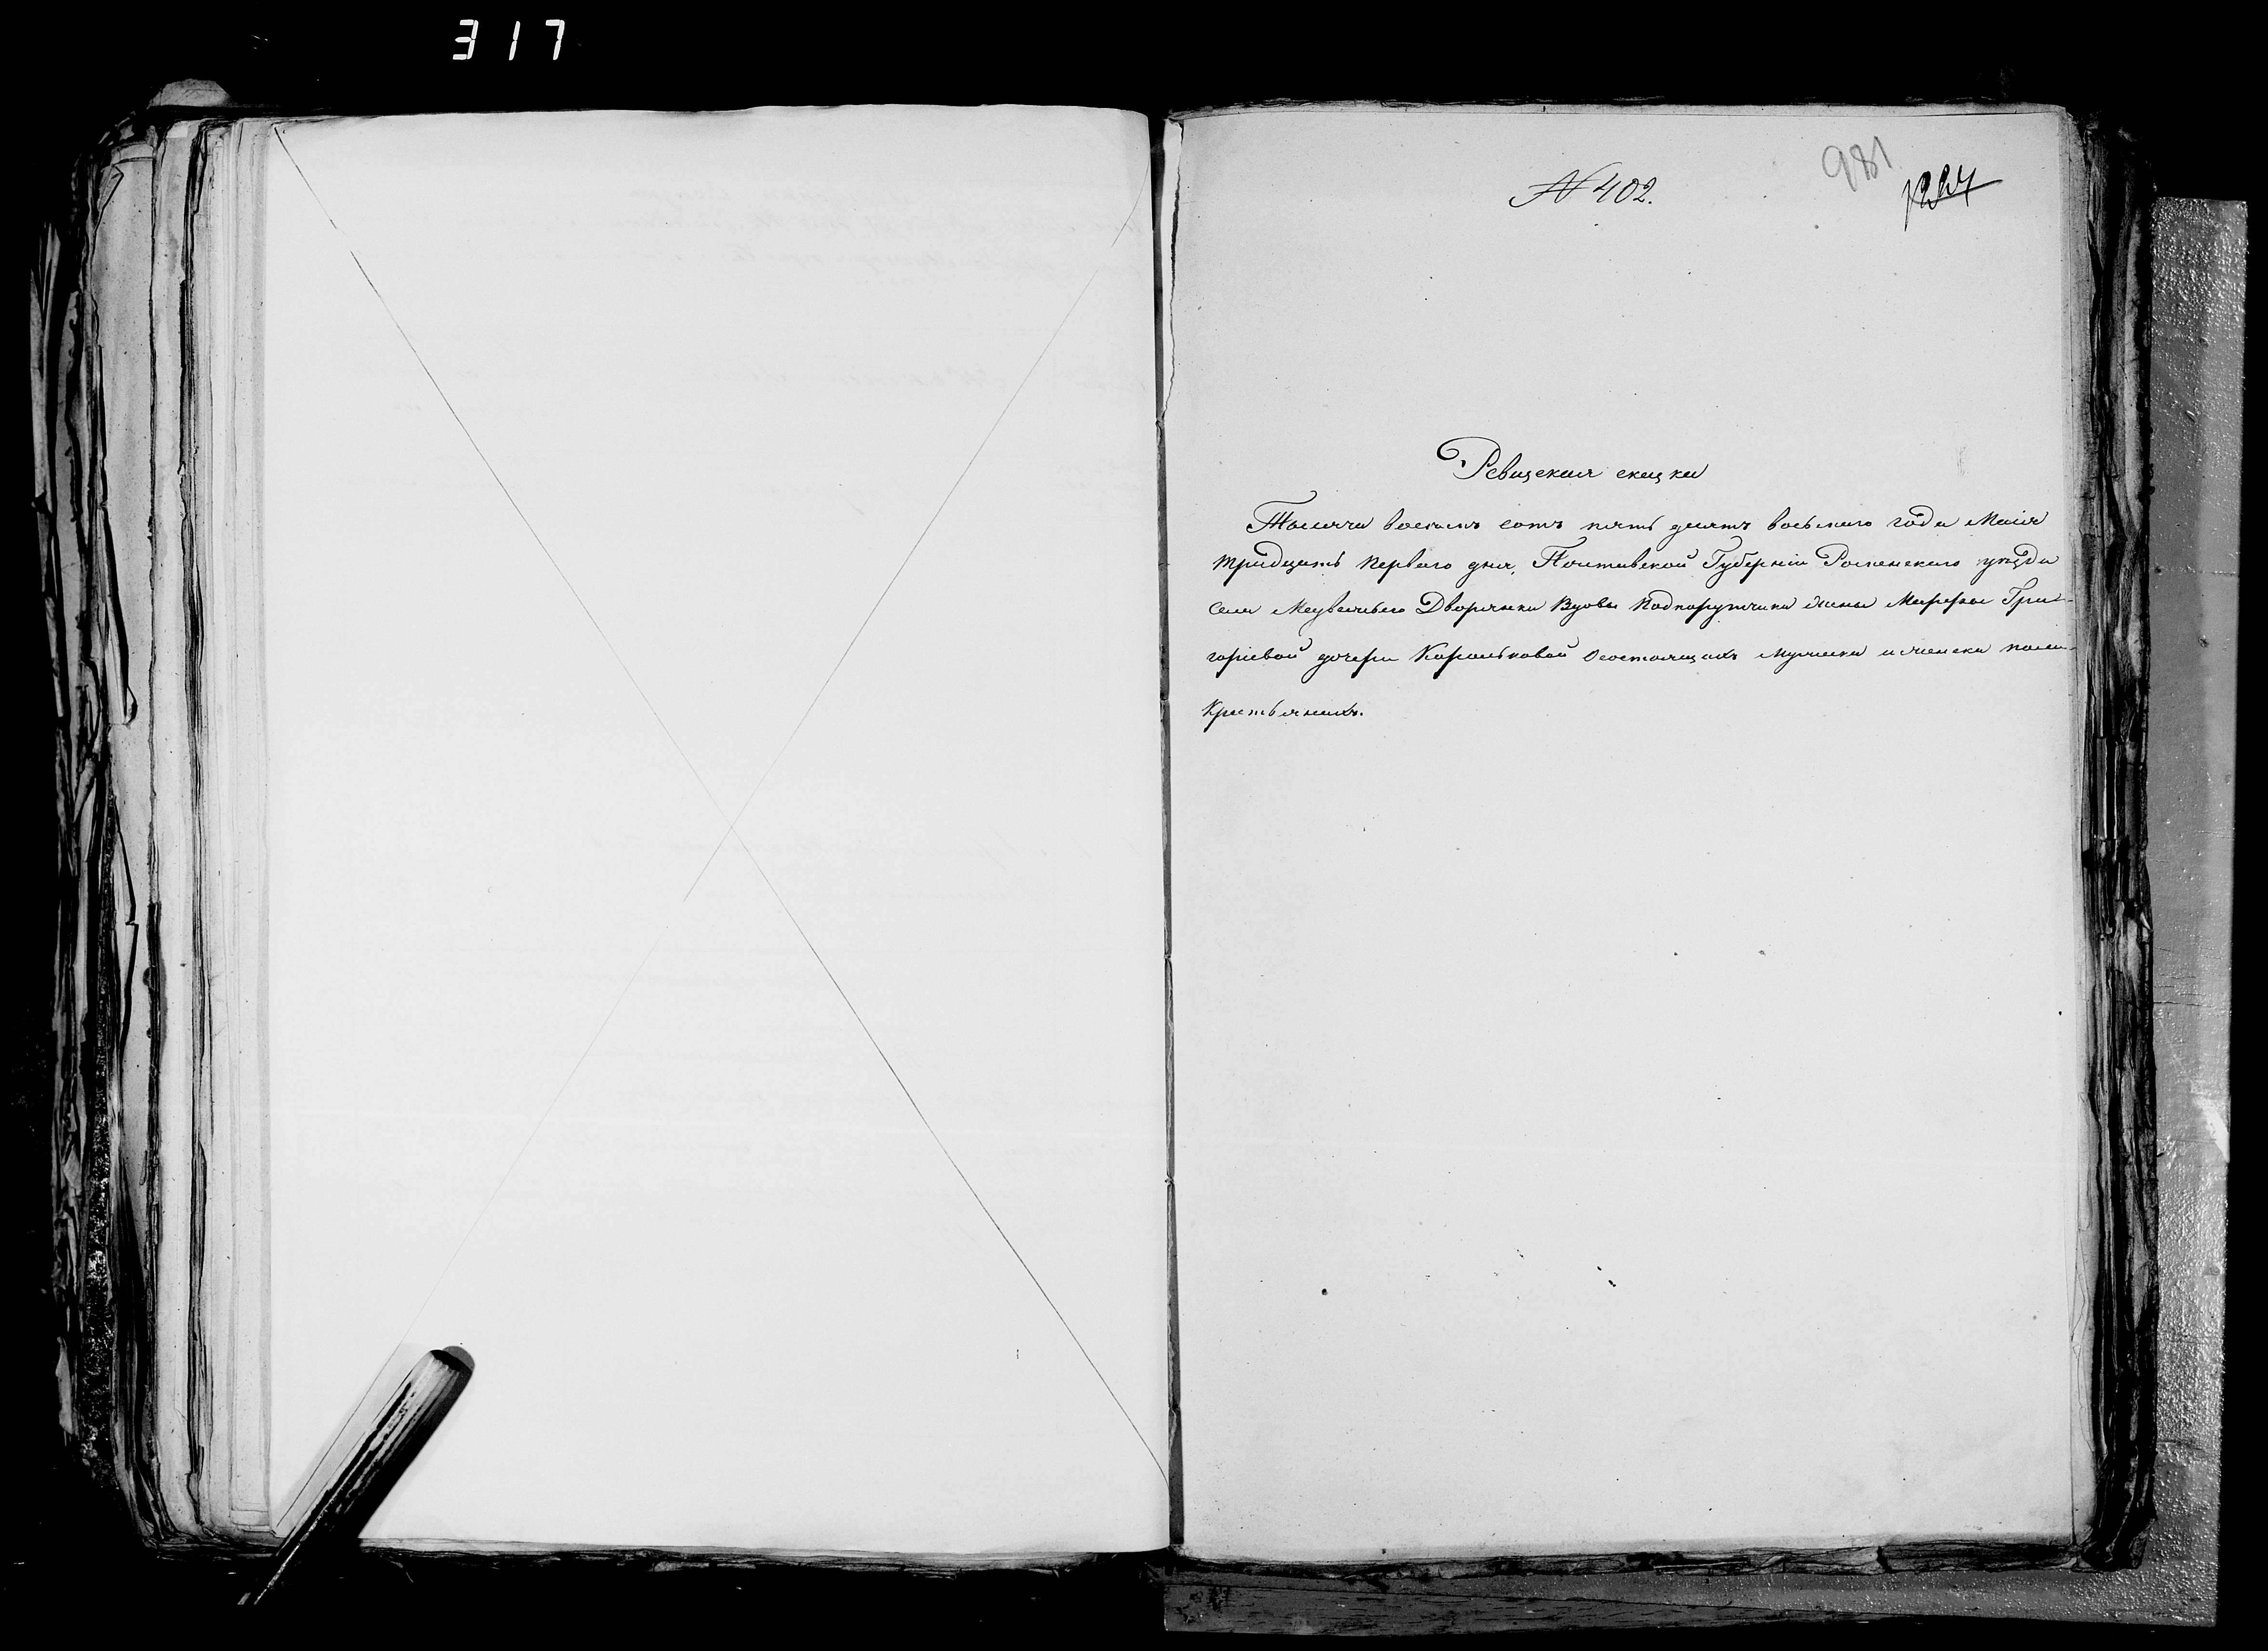 317
№ 402.
981
1224
Ревизская сказка
Тысяча восемь сотъ пять десятъ восьмаго года Маія
тридцать перваго дня, Полтавской Губерніи Роменскаго уезда
села Медвежьего Дворянки Вдовы Подпоручика жены Марфы Гри-
горіевой дочери Корольковой о состоящихъ мужеска и женска пола
Крестьянахъ.